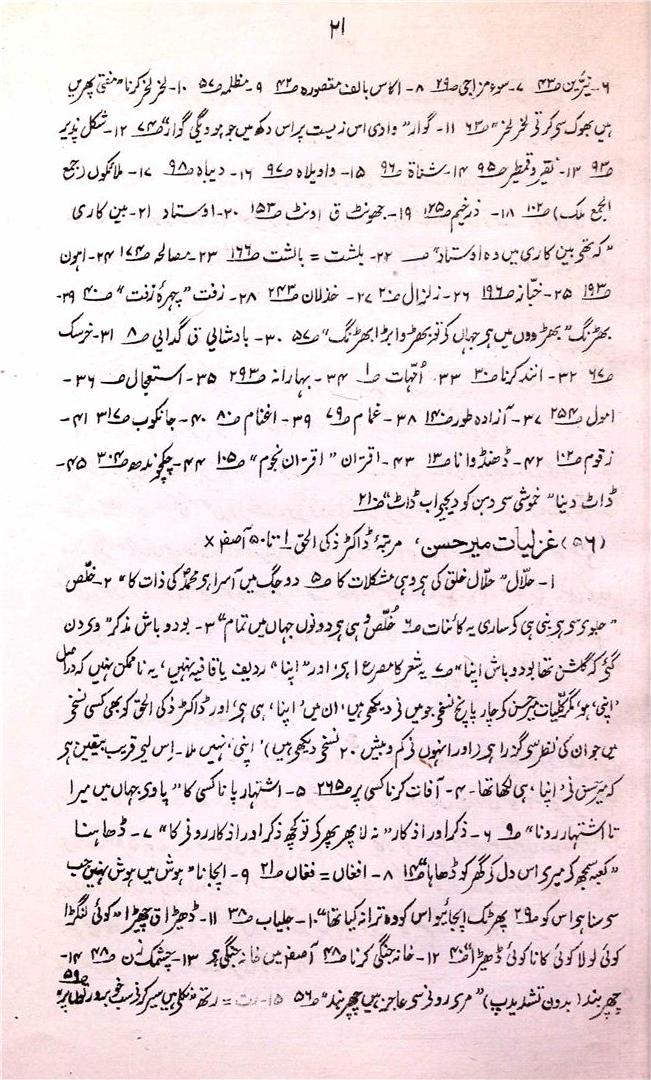 ۲۱
۶- نیرّین ص۴۳ ۷- سوء مزاجی ص۲۹ ۸- الماس بالف مقصورہ ص۴۲ ۹- مظلمہ ص۵۷ ۱۰- لخر لخر کرنا "مفتی پھریں
ہیں بھوک سی کرتی لخر لخر" ص۶۳ ۱۱- گوار "وادی اس زیست پر اس دکھ میں جو ہو دیگی گوار" ص۷۴ ۱۲- شکل پذیر
ص۹۳ ۱۳- نقیر و قطمیر ص۹۵ ۱۴- شماۃ ص۹۶ ۱۵- واویلاہ ص۹۷ ۱۶- دیباہ ص۹۸ ۱۷- ملائکوں (جمع
الجمع ملک) ص۱۰۲ ۱۸- ذرخیم ص۱۲۵ ۱۹- جھونٹ ق اونٹ ص۱۵۳ ۲۰- اوستاد ۲۱- بین کاری
"کہ تھی بین کاری میں وہ اوستاد" ص ۲۲- بلشت = بالشت ص۱۶۶ ۲۳- مصالحہ ص۱۷۴ ۲۴- اہون
ص۱۹۳ ۲۵- خبّاز ص۱۹۶ ۲۶- زلزال ص۲۰ ۲۷- خذلان ص۲۴۳ ۲۸- زفت "چہرۂ زفت" ص۴۰ ۲۹-
بھڑنگ "بھڑووں میں ہر جہاں کی تو بھڑوا بڑا بھڑنگ" ص۵۷ ۳۰- بادشائی ق گدایی ص۸ ۳۱- خرسک
ص۶۷ ۳۲- انند کرنا ص۳۰ ۳۳- اُمّہات ص۱ ۳۴- بہارانہ ص۲۹۳ ۳۵- استعجال ص ۳۶-
امول ص۲۵۴ ۳۷- آزادہ طور ص۱۴۰ ۳۸- غمام ص۷۹ ۳۹- اغنام ص۸۰ ۴۰- جانکوب ص۳۱۷ ۴۱-
زقوم ص۱۰۲ ۴۲- ڈھنڈوانا ص۱۳ ۴۳- اقتران "اقتران نجوم" ص۱۰۵ ۴۴- چکچوندھ ص۳۰۴ ۴۵-
ڈاٹ دینا "خموشی سی دہن کو دیجیو اب ڈاٹ" ص۲۱۰
(۵۶) غزلیات میر حسن، مرتبۂ ڈاکٹر ذکی الحق ۱ تا ۵۰ آصفہ x
۱- حلّال "حلّال خلق کی ہو وہی مشکلات کا ص۵ دو جگ میں آسرا ہو محمدؐ کی ذات کا" ۲- خلّص
"جلوی سو ہر بنی ہی کہ ساری یہ کائنات ص۶ خُلّص وہی ہر دونوں جہاں میں تمام" ۳- بود و باش مذکر "وی دن
گئے کہ گلشن تھا بود و باش اپنا" ص۷ یہ شعر کا مصرع ا ہر، اور "اپنا" ردیف یا قافیہ نہیں، یہ ناممکن نہیں کہ دراصل
'اپنی' ہو، مگر کلیات میر حسن کی چار پانچ نسخی جو میں نی دیکھی ہیں، ان میں 'اپنا' ہی ہر، اور ڈاکٹر ذکی الحق کو بھی کسی نسخی
میں جو ان کی نظر سی گزرا ہر (اور انہوں نی کم و بیش ۲۰ نسخی دیکھی ہیں)، 'اپنی' نہیں ملا۔ اس لیی قریب بیقین ہر
کہ میر حسن نی 'اپنا' ہی لکھا تھا۔ ۴- آفات کرنا کسی پر ص۲۶۵ ۵- اشتہار پانا کسی کا "پاوی جہاں میں میرا
تا اشتہار رونا" ص۹ ۶- ذکر اور اذکار "نہ لا پھر پھر کر تو کچھ ذکر اور اذکار رونی کا" ۷- ڈھاہنا
"کعبہ سمجھ کی میری اس دل کی گھر کو ڈھاہا" ص۱۴ ۸- افغان = فغان ص۲۱ ۹- اچانا "ہوش میں ہوش نہیں جب
سی سنا ہو اس کو ص۲۹ پھر ٹک اچائیو اس کو وہ ترانہ کیا تھا" ۱۰- جلباب ص۳۸ ۱۱- ڈھیڑا ق چھیڑا "کوئی لنگڑا
کوئی لولا کوئی کانا کوئی ڈھیڑا" ص۴۰ ۱۲- خانہ جنگی کرنا ص۴۸ آصفہ میں خانہ جنگی ہر ۱۳- چشمک زن ص۴۸ ۱۴-
چھپر بند (بدون تشدید پ) "مری رونی سی عاجز ہیں چھپر بند" ص۵۶ ۱۵- رت = رتھ "نکلی ہیں سیر کرنی سب خوبرو رتوں پر" ص۵۹